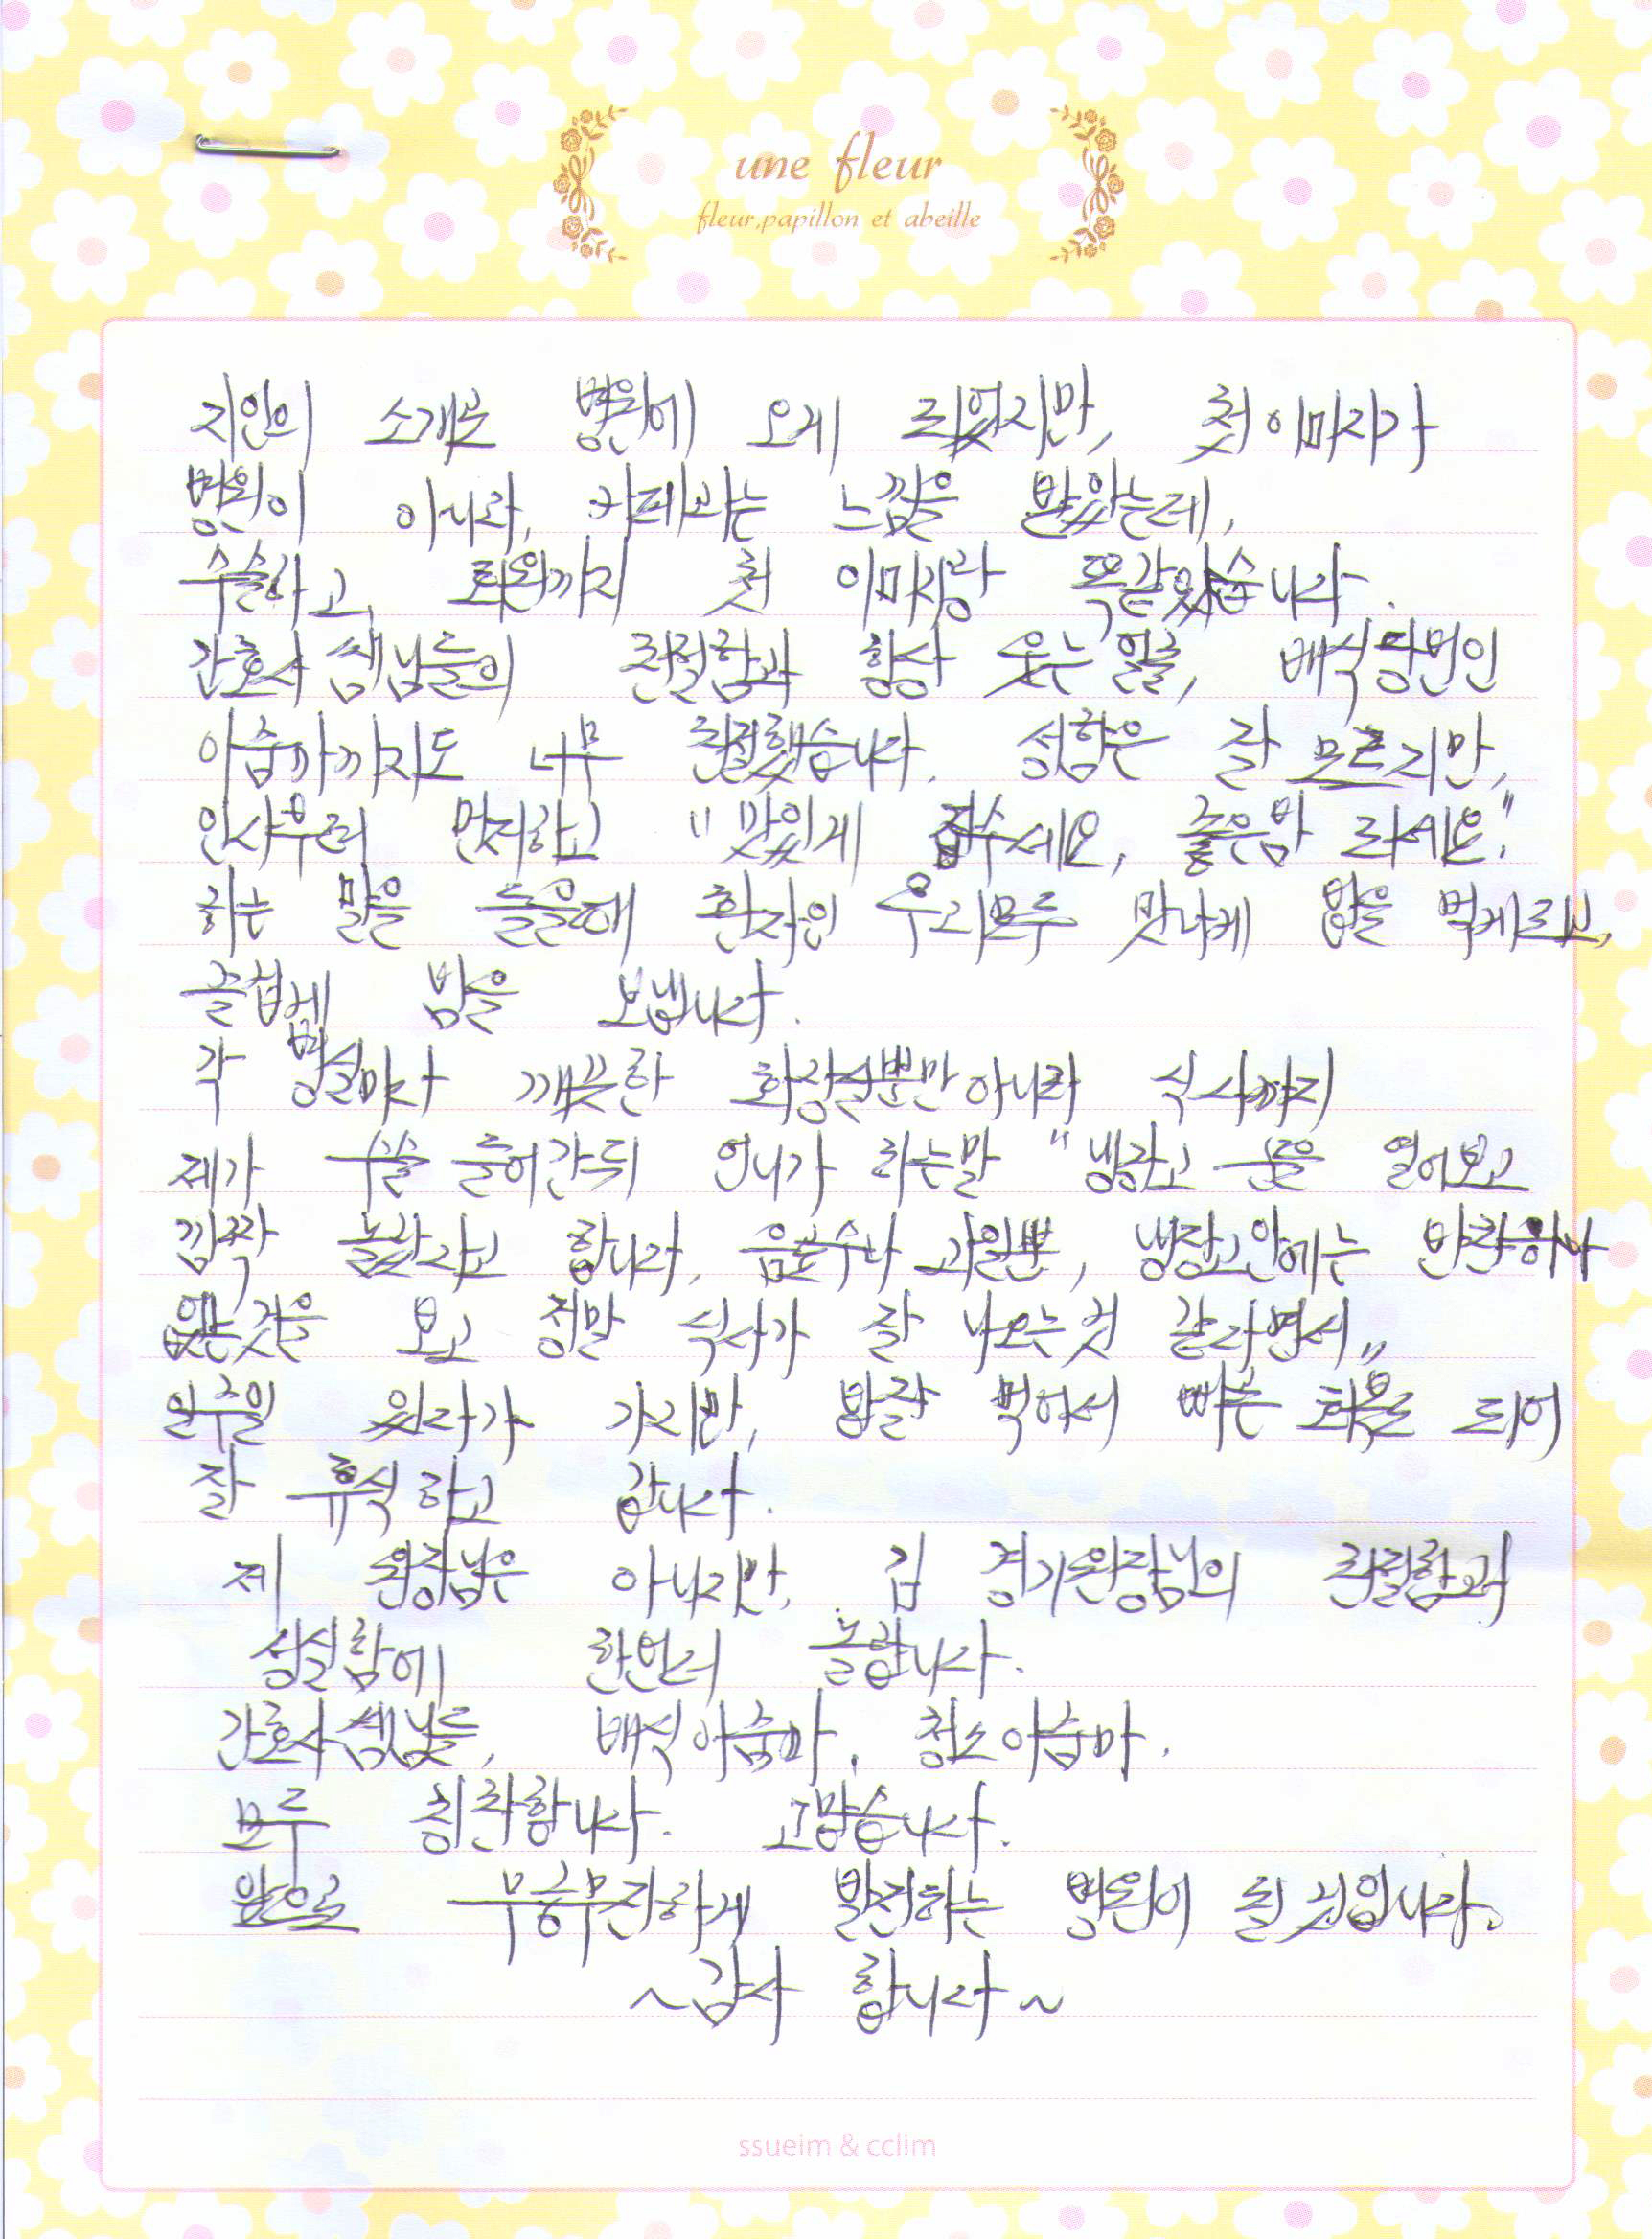 une fleur
fleur, papillon et abeille
지인의 소개로 병원에 오게 되었지만, 첫 이미지가
병원이 아니라, 카페라는 느낌을 받았는데,
수술하고, 퇴원까지 첫 이미지랑 똑같았습니다.
간호사 쌤님들의 친절함과 항상 웃는 얼굴, 배식당번인
아줌마까지도 너무 친절했습니다. 성함은 잘 모르지만,
인사부터 먼저하고 "맛있게 잡수세요, 좋은밤 되세요."
하는 말을 들을때 환자인 우리모두 맛나게 밥을 먹게되고,
즐겁게 밤을 보냅니다.
각 병실마다 깨끗한 화장실뿐만아니라 식사까지
제가 수술 들어간뒤 언니가 하는말 "냉장고 문을 열어보고
깜짝 놀랐다고 합니다, 음료수나 과일뿐, 냉장고안에는 반찬하나
없는것을 보고 정말 식사가 잘 나오는것 같다면서"
일주일 있다가 가지만, 밥잘 먹어서 빠른 회복도 되어
잘 휴식하고 갑니다.
제 원장님은 아니지만, 김 경기원장님의 친절함과
성실함에 한번더 놀랍니다.
간호사쌤님들, 배식아줌마, 청소아줌마.
모두 칭찬합니다. 고맙습니다.
앞으로 무궁무진하게 발전하는 병원이 될것입니다.
~감사 합니다~
ssueim & cclim